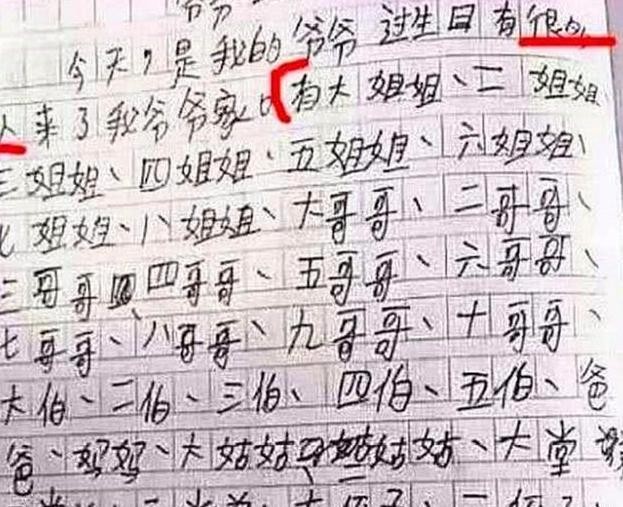 爷爷
今天,是我的爷爷过生日有很多
人来了我爷爷家口有大姐姐、二姐姐
三姐姐、四姐姐、五姐姐、六姐姐、
七姐姐、八姐姐、大哥哥、二哥哥、
三哥哥四哥哥、五哥哥、六哥哥、
七哥哥、八哥哥、九哥哥、十哥哥、
大伯、二伯、三伯、四伯、五伯、爸
爸、妈妈、大姑姑、二姑姑、大堂